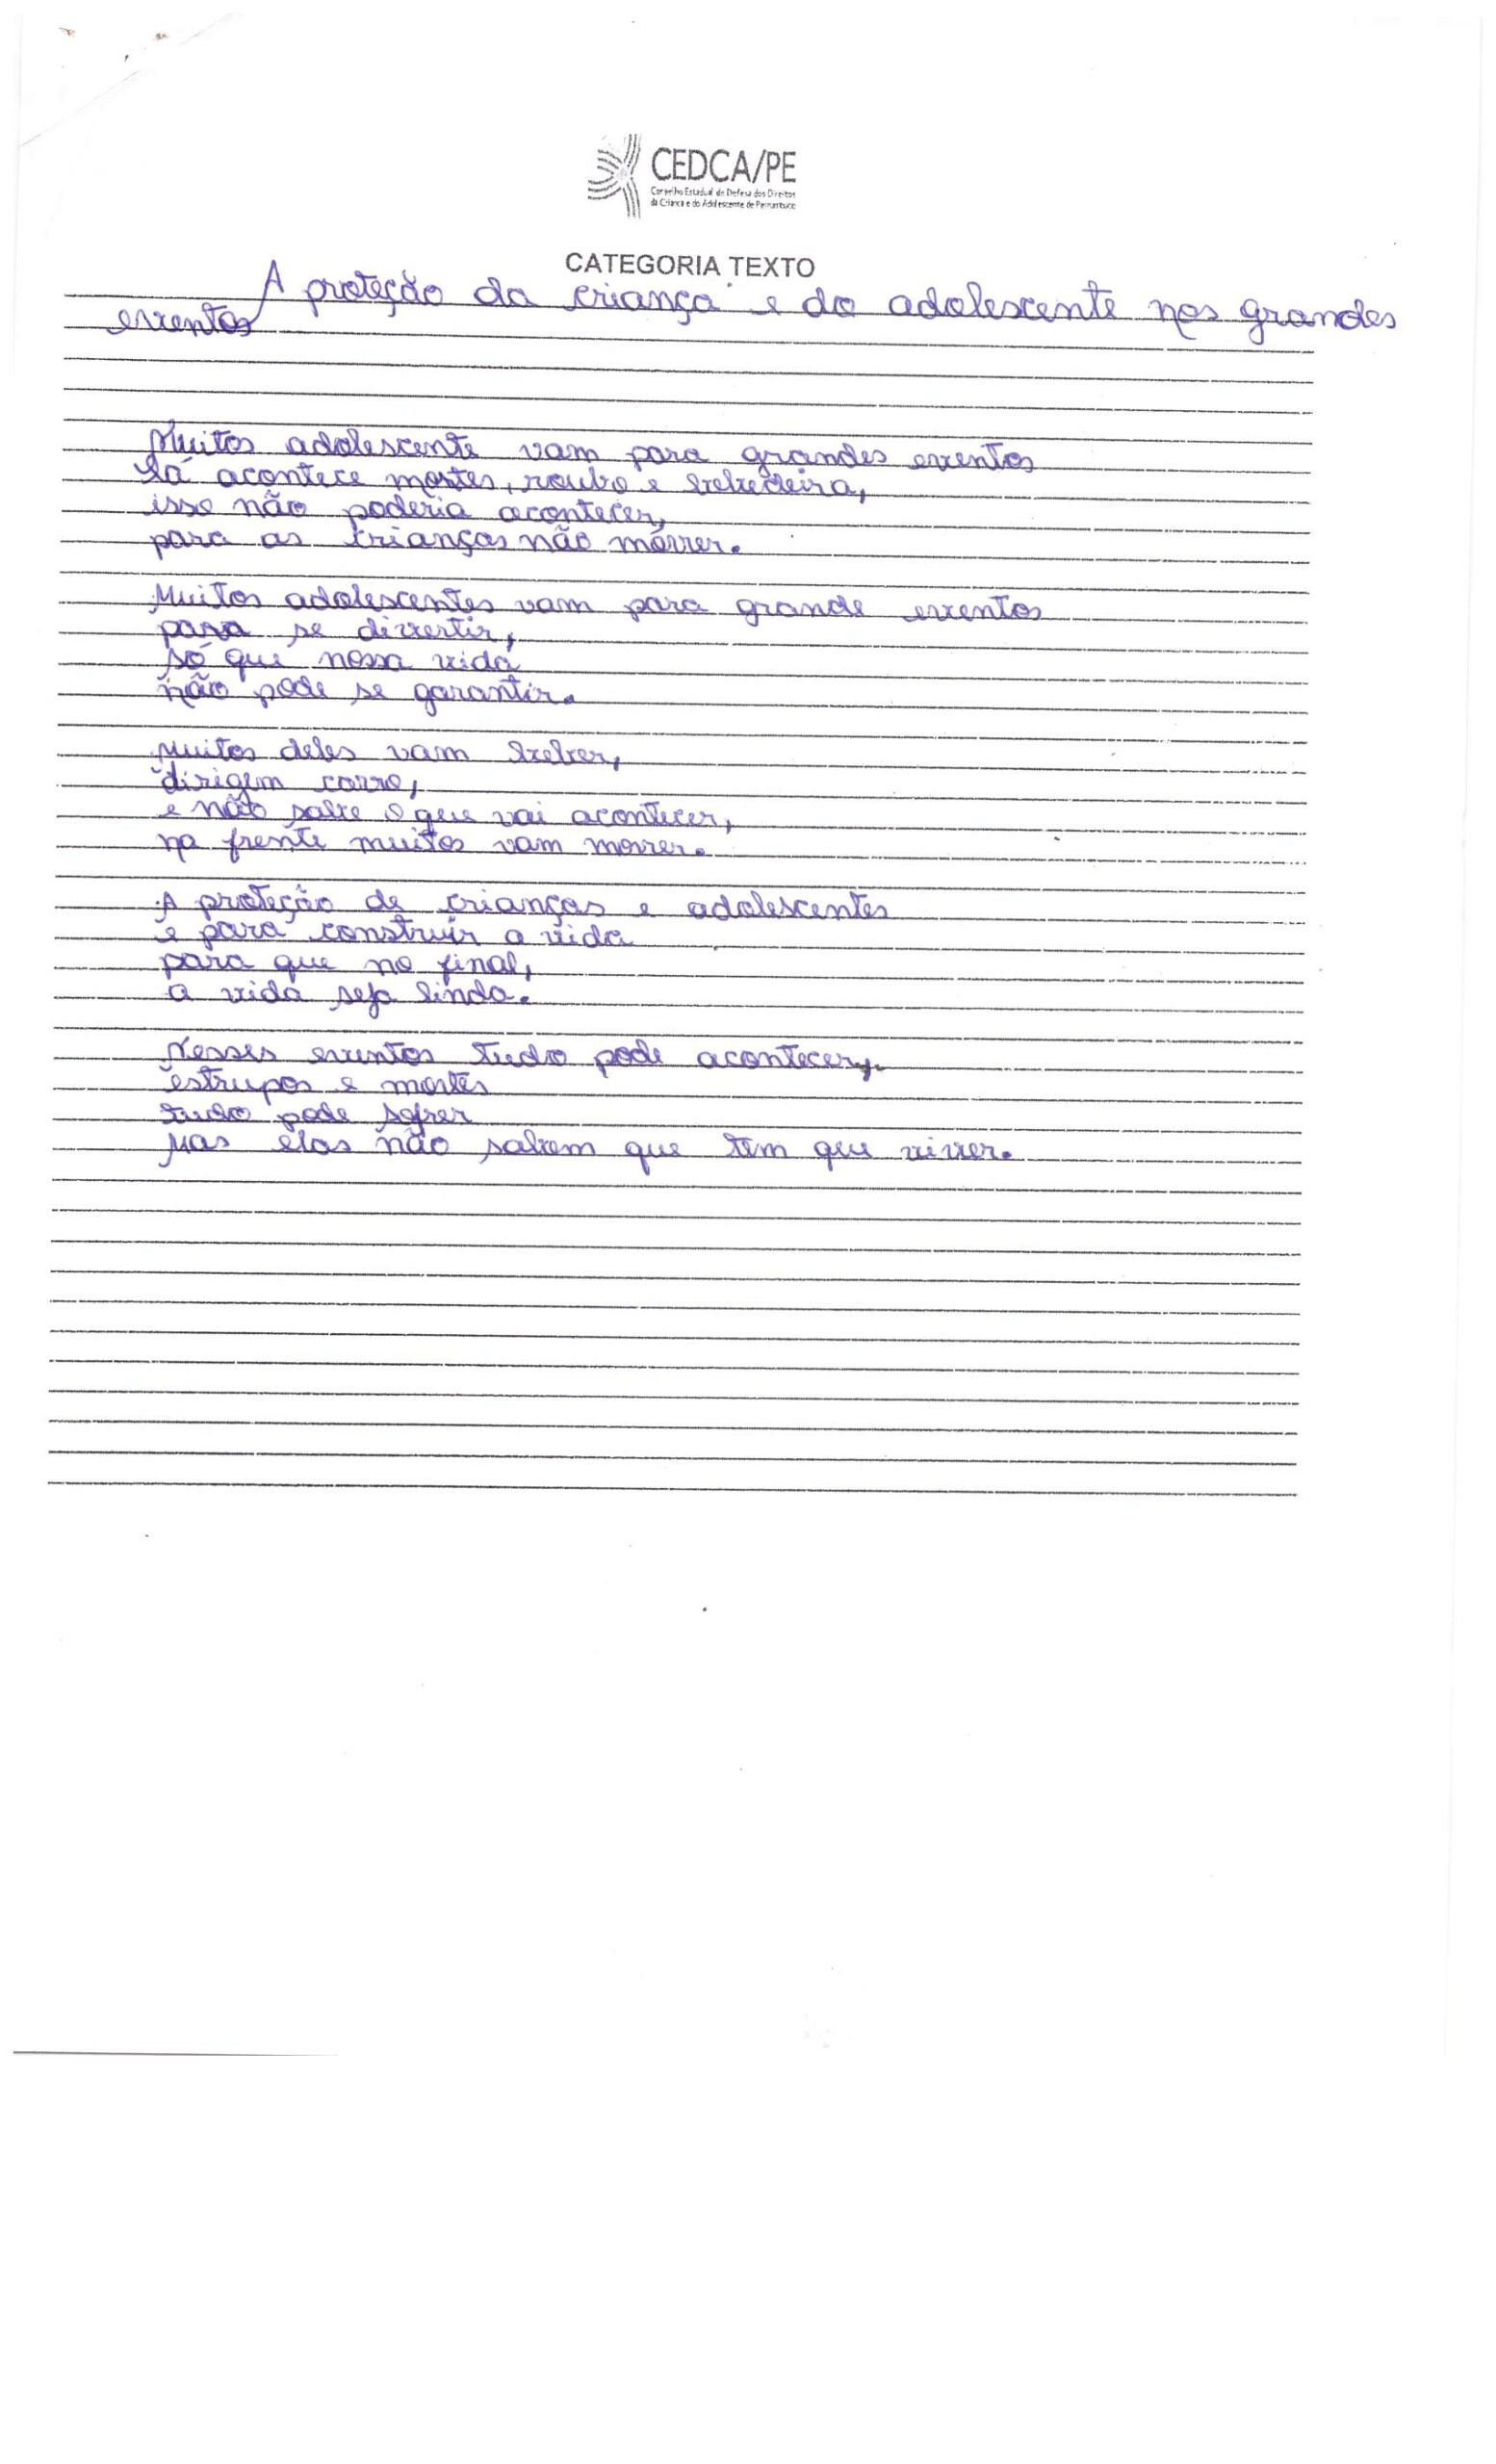 CEDCA/PE
Conselho Estadual de Defesa dos Direitos
da Criança e do Adolescente de Pernambuco
CATEGORIA TEXTO
A proteção da criança e do adolescente nos grandes
eventos
Muitos adolescente vam para grandes eventos
Lá acontece mortes, roubo e bebedeira,
isso não poderia acontecer,
para as crianças não morrer.
Muitos adolescentes vam para grande eventos
para se divertir,
só que nossa vida
não pode se garantir.
Muitos deles vam beber,
dirigem carro,
e não sabe o que vai acontecer,
na frente muitos vam morrer.
A proteção de crianças e adolescentes
e para construir a vida
para que no final,
a vida seja linda.
Nesses eventos tudo pode acontecer,
estrupos e mortes
tudo pode sofrer
Mas elas não sabem que tem que viver.